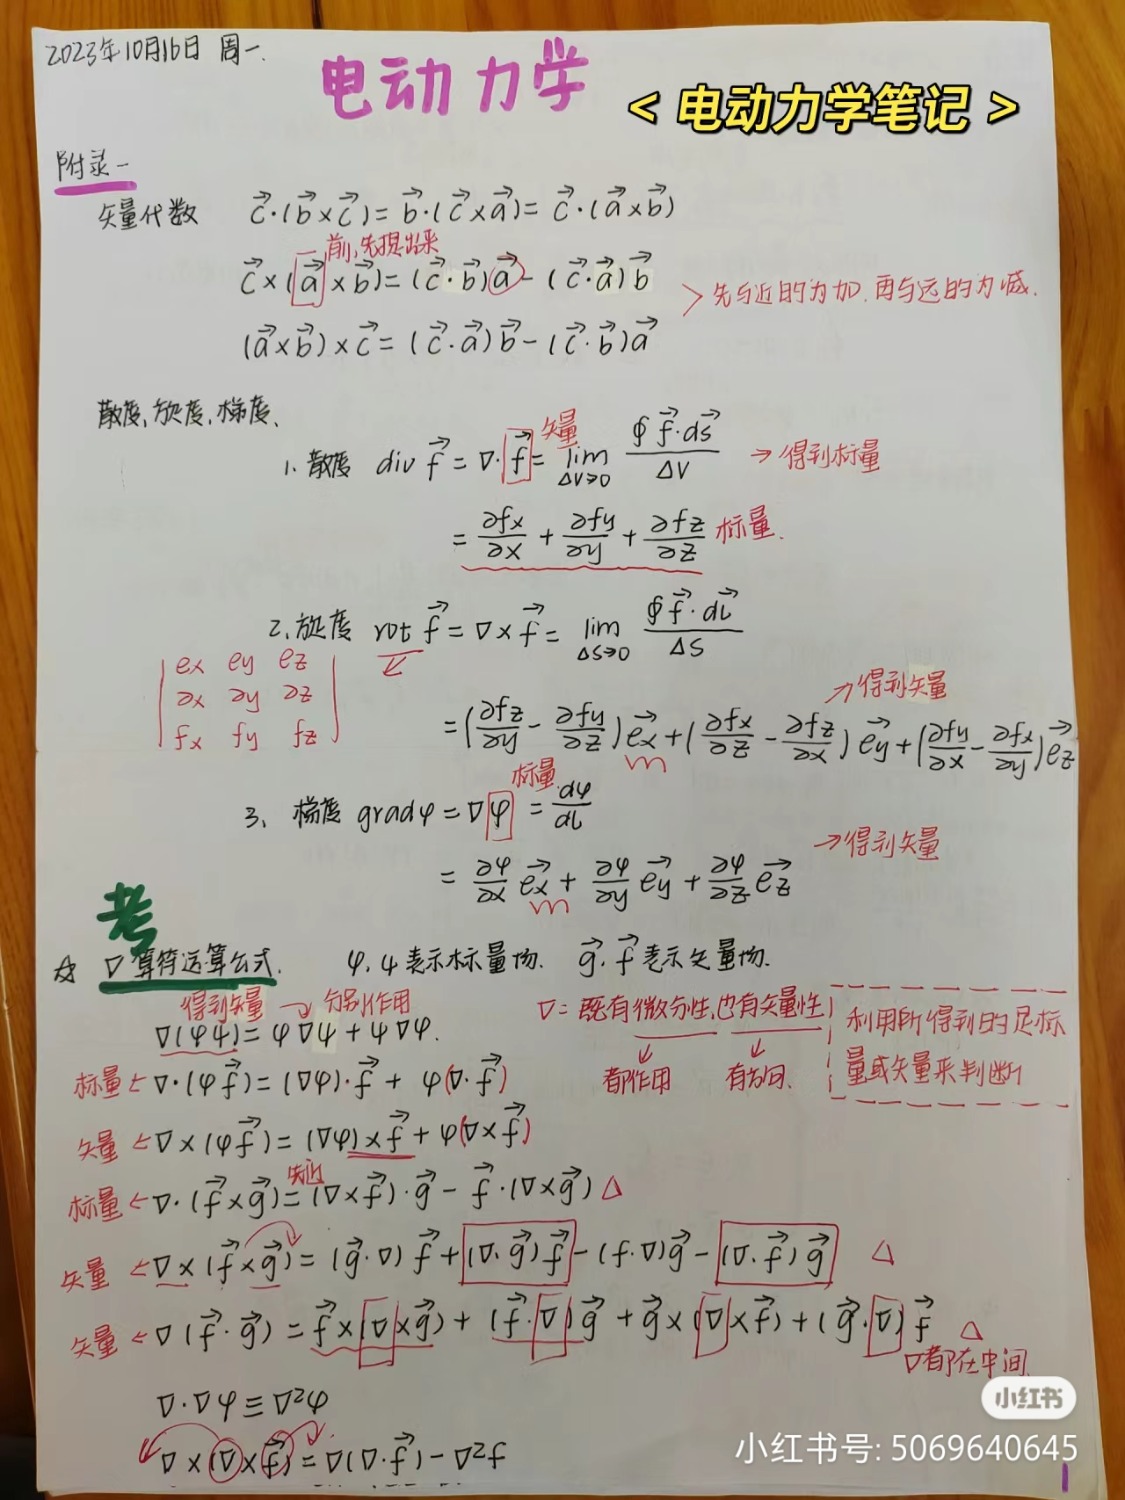 2023年10月16日 周一.
电动力学
< 电动力学笔记 >
附录一
矢量代数 c⃗·(b⃗×c⃗)= b⃗·(c⃗×a⃗)= c⃗·(a⃗×b⃗)
前,先提出来
c⃗×(a⃗×b⃗)=(c⃗·b⃗)a⃗-(c⃗·a⃗)b⃗
> 先与近的为加.再与远的为减.
(a⃗×b⃗)×c⃗=(c⃗·a⃗)b⃗-(c⃗·b⃗)a⃗
散度,旋度,梯度、
矢量
1. 散度 div f⃗ = ∇·f⃗ = lim ΔV→0 ∮f⃗·ds⃗/ΔV → 得到标量
= ∂fx/∂x + ∂fy/∂y + ∂fz/∂z 标量.
2. 旋度 rot f⃗ = ∇×f⃗ = lim ΔS→0 ∮f⃗·dl⃗/ΔS
ex ey ez
∂x ∂y ∂z
fx fy fz
→得到矢量
=(∂fz/∂y - ∂fy/∂z)e⃗x+(∂fx/∂z - ∂fz/∂x)e⃗y+(∂fy/∂x - ∂fx/∂y)e⃗z
标量
3、梯度 gradφ = ∇φ = dφ/dl
→得到矢量
= ∂φ/∂x e⃗x + ∂φ/∂y e⃗y + ∂φ/∂z e⃗z
考
☆ ∇算符运算公式. φ.ψ表示标量场. g⃗.f⃗表示矢量场.
得到矢量 → 分别作用
∇(φψ)= φ∇ψ + ψ∇φ.
∇= 既有微分性,也有矢量性
都作用 有方向.
利用所得到的是标
量或矢量来判断
标量 ← ∇·(φf⃗)=(∇φ)·f⃗ + φ(∇·f⃗)
矢量 ← ∇×(φf⃗)=(∇φ)×f⃗ + φ(∇×f⃗)
先近
标量 ← ∇·(f⃗×g⃗)=(∇×f⃗)·g⃗ - f⃗·(∇×g⃗) △
矢量 ← ∇×(f⃗×g⃗)=(g⃗·∇)f⃗+(∇·g⃗)f⃗-(f·∇)g⃗-(∇·f⃗)g⃗ △
矢量 ← ∇(f⃗·g⃗)= f⃗×(∇×g⃗)+(f⃗·∇)g⃗+g⃗×(∇×f⃗)+(g⃗·∇)f⃗ △
∇都在中间.
∇·∇φ≡∇²φ
∇×(∇×f⃗)=∇(∇·f⃗)-∇²f
小红书
小红书号: 5069640645
1